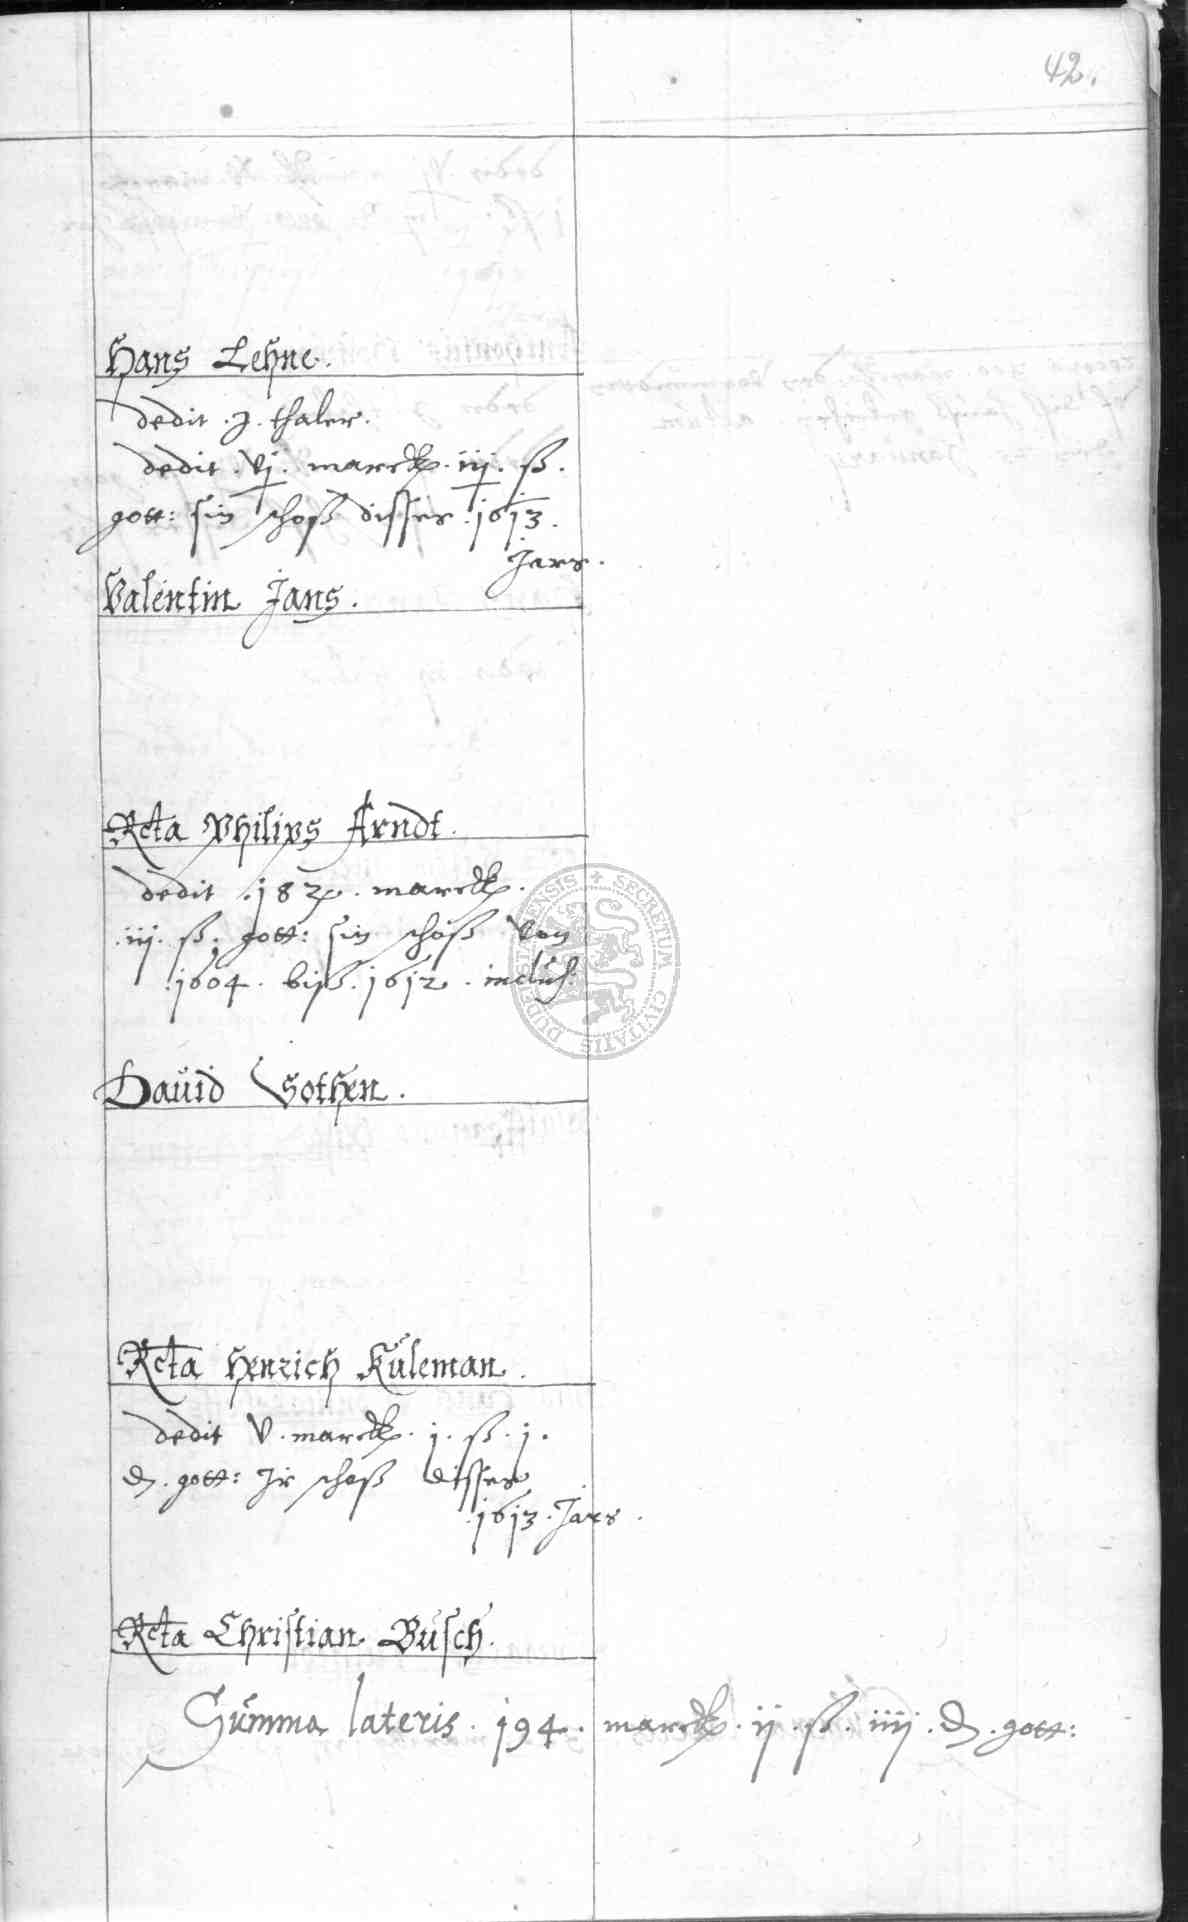 42.
Hans Lehne.
dedit . j . thaler.
dedit . vj . marck . iij . ß .
gott: sin schoß disses . 1613 .
Jars .
Valentin Jans .
Rcta Philips Arndt .
dedit . 182 . marck .
. iij . ß . gott: sin schoß von
. 1604 . biß . 1612 . inclus:
Dauid Gothen .
Rcta Henrich Kuleman .
dedit v . marck . j . ß . j .
d . gott: Jr schoß disses
. 1613 . Jars .
Rcta Christian Busch .
Summa lateris . 194 . marck . ij . ß . iiij . d . gott:
SECRETUM CIVITATIS DUDERSTADENSIS